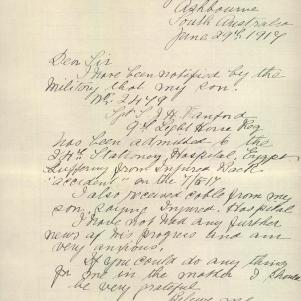 Ashbourne
South Australia
June 29th 1917
Dear Sir
I have been notified by the
Military that my son.
No 2479
Sgt S. J. H. Fanford
9th Light Horse Reg
has been admitted to the
24th Stationery Hospital, Egypt
suffering from Injured Back
"accident" on the 7/5/17
I also received cable from my
son saying Injured. Hospital
I have not had any further
news of his progress and am
very anxious.
If you could do any thing
for me in the matter I should
be very grateful
Believe me